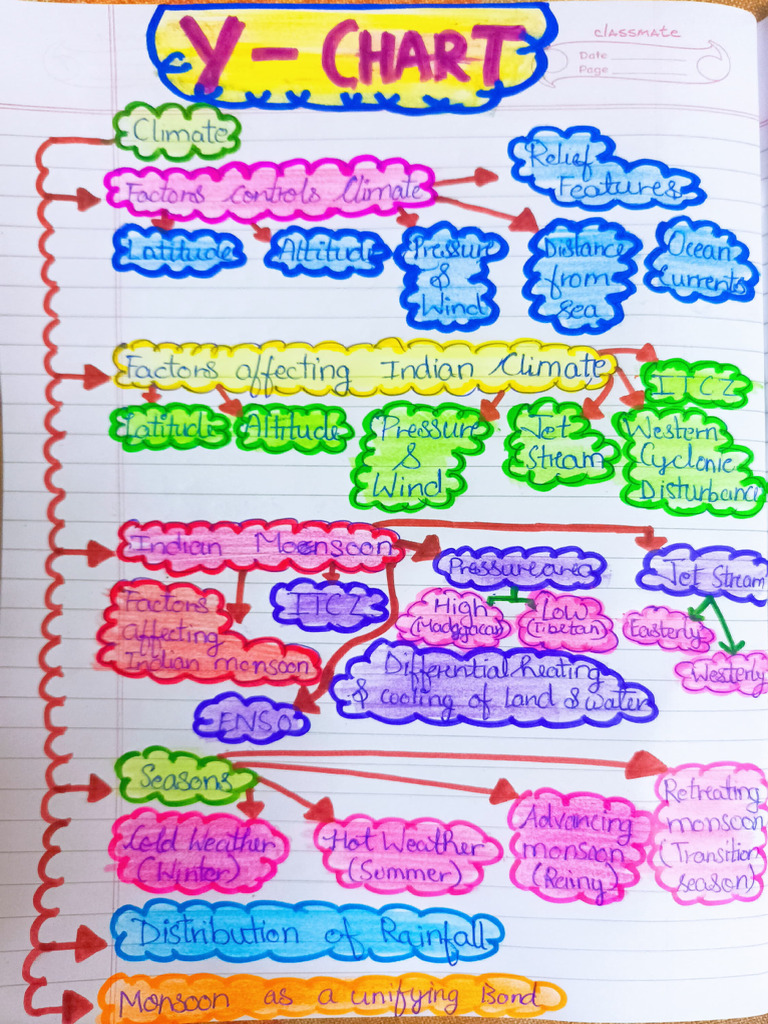 Y - CHART
classmate
Date
Page
Climate
Relief
Features
Factors controls Climate
Latitude
Altitude
Pressure
&
Wind
Distance
from
sea
Ocean
Currents
Factors affecting Indian Climate
ITCZ
Latitude
Altitude
Pressure
&
Wind
Jet
Stream
Western
Cyclonic
Disturbance
Indian Monsoon
Pressure area
Jet Stream
Factors
affecting
Indian monsoon
ITCZ
High
Low
(Tibetan)
Easterly
Westerly
Differential heating
& cooling of land & water
ENSO
Seasons
Cold Weather
(Winter)
Hot Weather
(Summer)
Advancing
monsoon
(Reiny)
Retreating
monsoon
(Transition
season)
Distribution of Rainfall
Monsoon as a unifying Bond